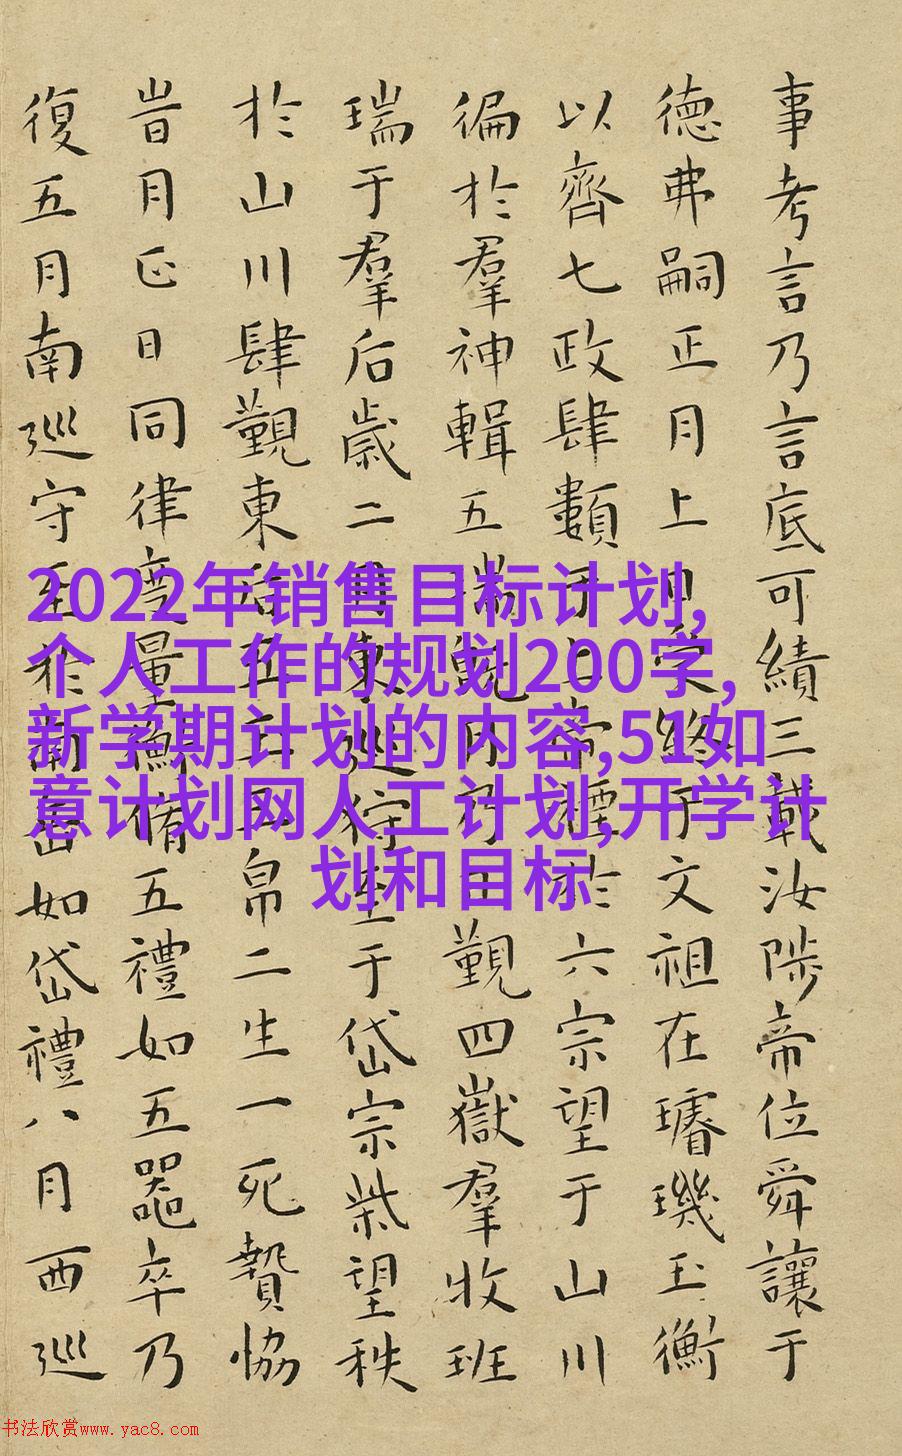 事考言乃言底可績三載汝陟帝位舜讓于
德弗嗣正月上日受終于文祖在璿璣玉衡
以齊七政肆類于上帝禋於六宗望于山川
徧於羣神輯五瑞既月乃日覲四嶽羣收班
瑞于羣后歲二月東巡狩至于岱宗柴望秩
於山川肆覲東后五玉三帛二生一死贄協
旹月正日同律度量衡脩五禮如五器卒乃
復五月南巡守至於南岳如岱禮八月西巡
2022年销售目标计划,
个人工作的规划200字,
新学期计划的内容,51如
意计划网人工计划,开学计
划和目标
书法欣赏www.yac8.com